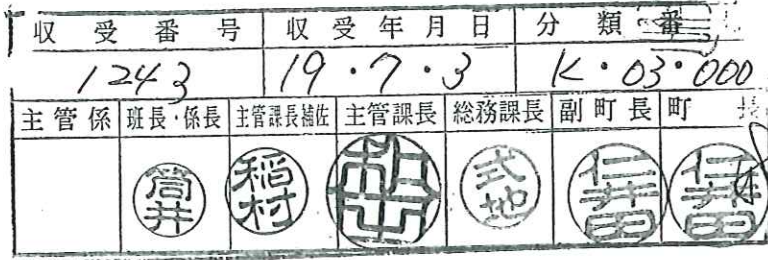 収受番号 収受年月日 分類番
1243 19・7・3 K・03・000
主管係 班長・係長 主管課長補佐 主管課長 総務課長 副町長 町長
筒井 稲村 式地 仁井田 仁井田